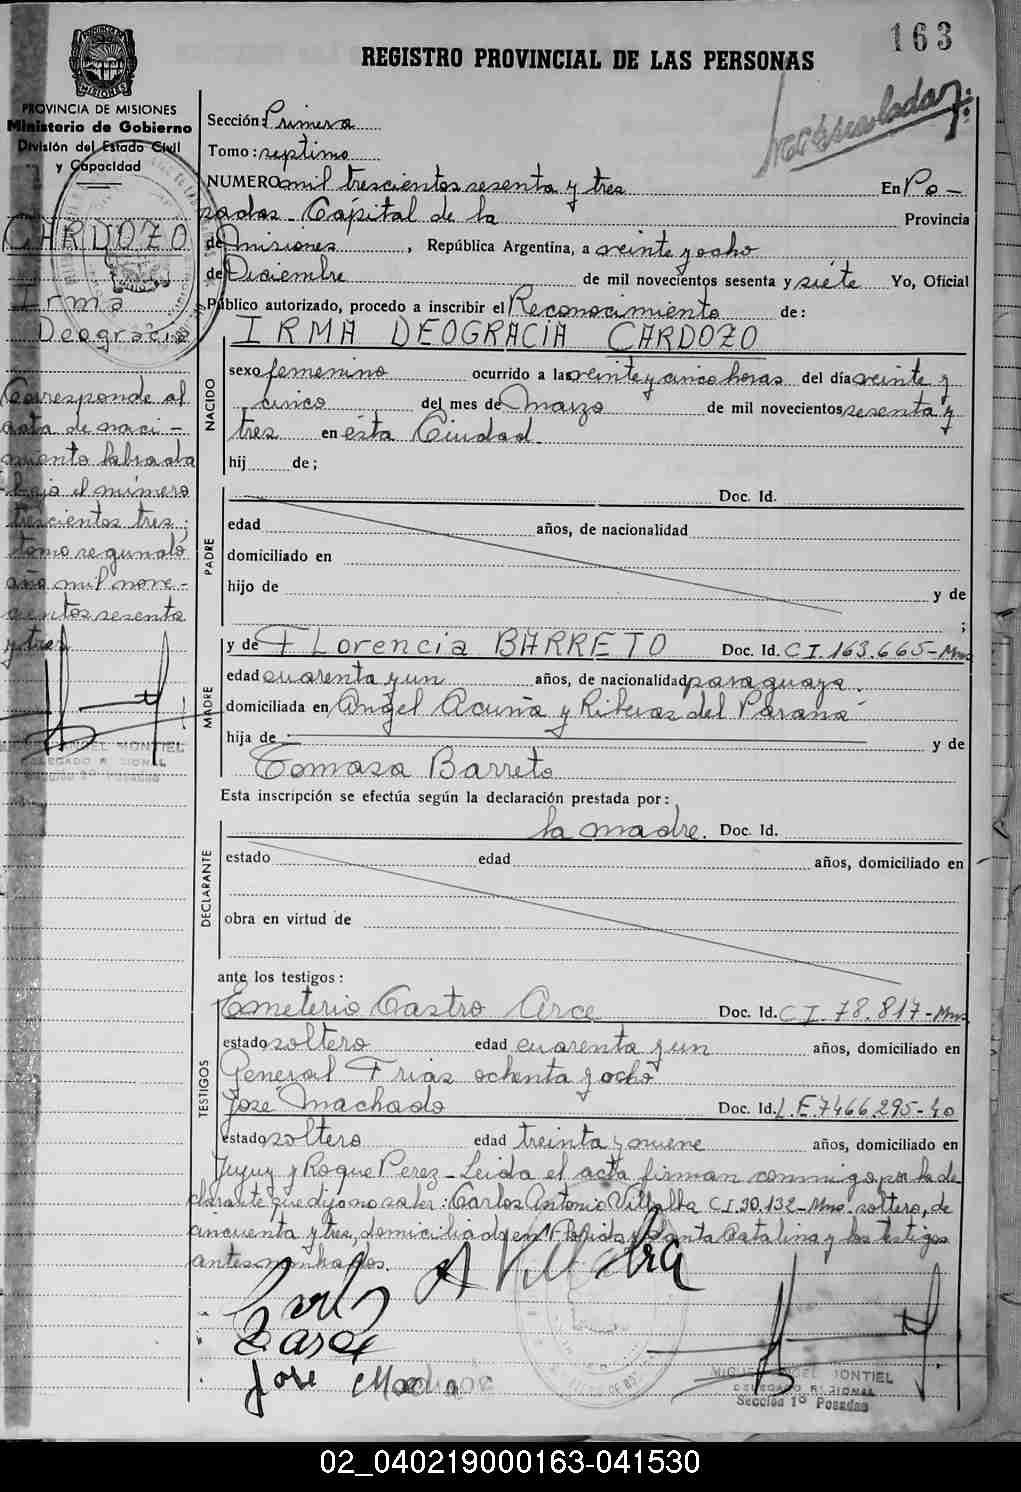 163
REGISTRO PROVINCIAL DE LAS PERSONAS
PROVINCIA DE MISIONES
Ministerio de Gobierno
División del Estado Civil
y Capacidad
CARDOZO
Irma
Deogracia
Corresponde al
acta de naci-
miento labrada
bajo el número
trescientos tres;
tomo segundo
año mil nove-
cientos sesenta
y tres
MIGUEL ANGEL MONTIEL
DELEGADO REGIONAL
Sección 1º Posadas
Sección: Primera
Tomo: septimo
NUMERO mil trescientos sesenta y tres En Po-
sadas - Capital de la Provincia
de Misiones, República Argentina, a veinte y ocho
de Diciembre de mil novecientos sesenta y siete Yo, Oficial
Público autorizado, procedo a inscribir el Reconocimiento de:
IRMA DEOGRACIA CARDOZO
NACIDO
sexo femenino ocurrido a las veinte y cinco horas del día veinte y
cinco del mes de Marzo de mil novecientos sesenta y
tres en ésta Ciudad.
hij de;
PADRE
Doc. Id.
edad años, de nacionalidad
domiciliado en
hijo de y de
;
MADRE
y de Florencia BARRETO Doc. Id. C.I. 163.665-Mns
edad cuarenta y un años, de nacionalidad paraguaya.
domiciliada en Angel Acuña y Riberas del Paraná
hija de y de
Tomasa Barreto
Esta inscripción se efectúa según la declaración prestada por:
DECLARANTE
la madre. Doc. Id.
estado edad años, domiciliado en
obra en virtud de
ante los testigos:
TESTIGOS
Emeterio Castro Arce Doc. Id. C.I. 78.817-Mns
estado soltero edad cuarenta y un años, domiciliado en
General Frias ochenta y ocho
José Machado Doc. Id. L.E. 7466.295-40
estado soltero edad treinta y nueve años, domiciliado en
Jujuy y Roque Perez - Leida el acta firman conmigo por la de
clarante que dijo no saber: Carlos Antonio Villalba C.I. 30.132-Mns. soltero, de
cincuenta y tres, domiciliado en Florida y Santa Catalina y los testigos
antes nombrados.
Carlos A Villalba
Jose Machado
MIGUEL ANGEL MONTIEL
DELEGADO REGIONAL
Sección 1º Posadas
02_040219000163-041530